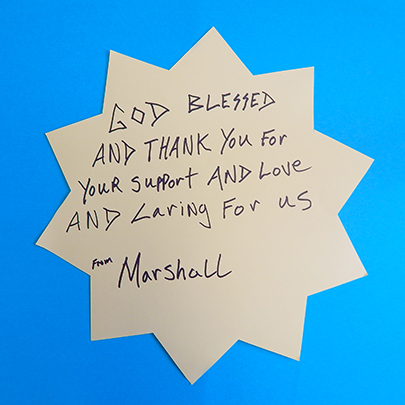 GOD BLESSED
AND THANK YOU FOR
YOUR SUPPORT AND LOVE
AND Laring FOR US
From Marshall